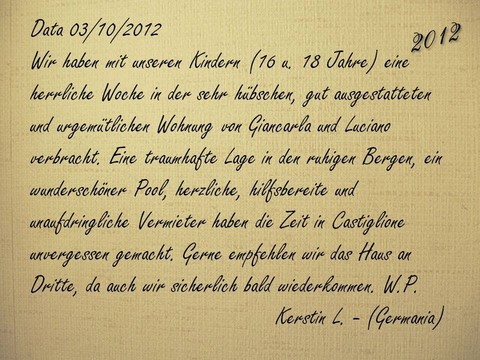 Data 03/10/2012
2012
Wir haben mit unseren Kindern (16 u. 18 Jahre) eine
herrliche Woche in der sehr hübschen, gut ausgestatteten
und urgemütlichen Wohnung von Giancarla und Luciano
verbracht. Eine traumhafte Lage in den ruhigen Bergen, ein
wunderschöner Pool, herzliche, hilfsbereite und
unaufdringliche Vermieter haben die Zeit in Castiglione
unvergessen gemacht. Gerne empfehlen wir das Haus an
Dritte, da auch wir sicherlich bald wiederkommen. W.P.
Kerstin L. - (Germania)